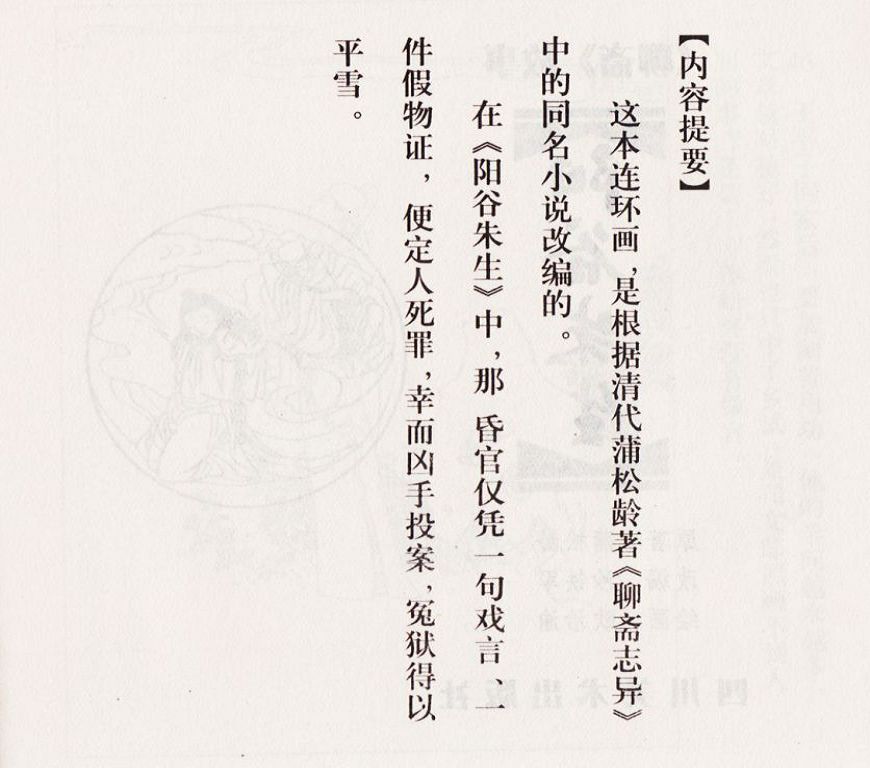 【内容提要】
这本连环画,是根据清代蒲松龄著《聊斋志异》
中的同名小说改编的。
在《阳谷朱生》中,那昏官仅凭一句戏言、一
件假物证,便定人死罪,幸而凶手投案,冤狱得以
平雪。